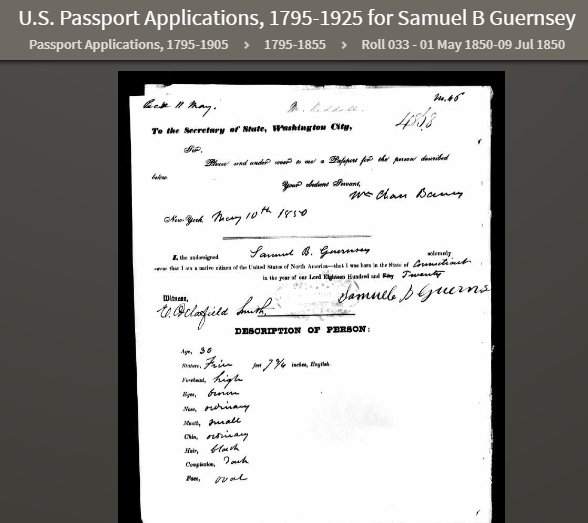 U.S. Passport Applications, 1795-1925 for Samuel B Guernsey
Passport Applications, 1795-1905 › 1795-1855 › Roll 033 - 01 May 1850-09 Jul 1850
11 May.
4868
To the Secretary of State, Washington City,
Sir,
Please send under cover to me a Passport for the person described
below.
Your obedient Servant,
Wm Chas
New-York, May 10th 1850
I, the undersigned Samuel B. Guernsey solemnly
swear that I am a native citizen of the United States of North America—that I was born in the State of Connecticut
in the year of our Lord Eighteen Hundred and Twenty
Samuel B Guernsey
Witness,
Smith
DESCRIPTION OF PERSON:
Age, 30
Stature, Five feet 7 3/4 inches, English.
Forehead, high
Eyes, brown
Nose, ordinary
Mouth, small
Chin, ordinary
Hair, black
Complexion, Dark
Face, oval